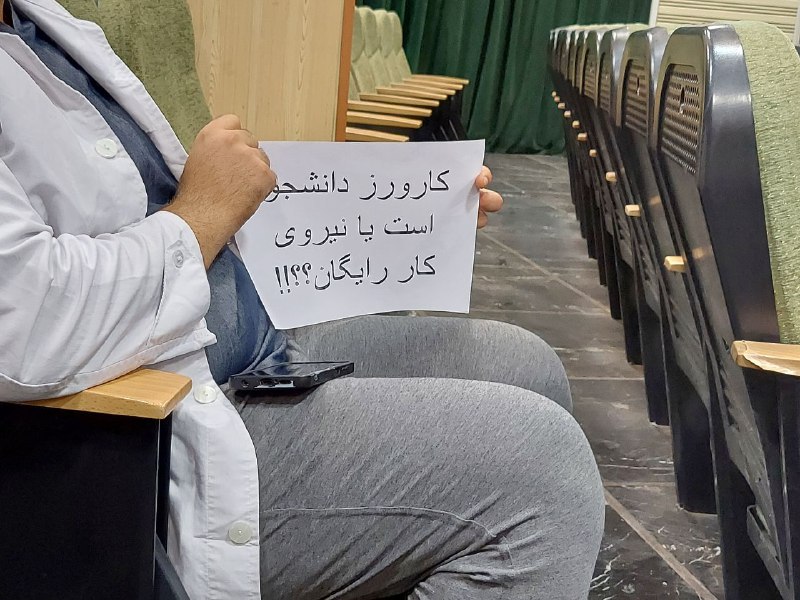 کارورز دانشجو
است یا نیروی
کار رایگان؟؟!!